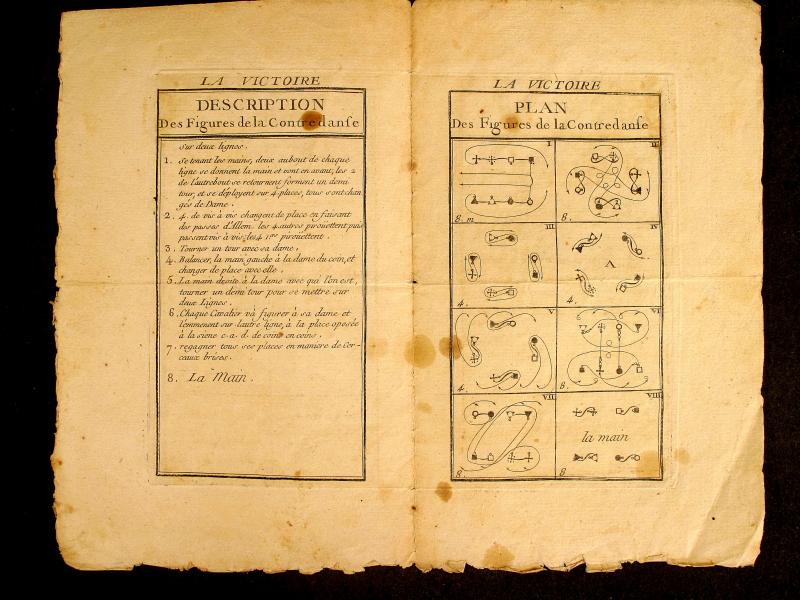 LA VICTOIRE
DESCRIPTION
Des Figures de la Contredanse
Sur deux lignes.
1. Se tenant les mains, deux au bout de chaque
ligne se donnent la main et vont en avant, les 2
de l'autre bout se retournent forment un demi
tour, et se déployent sur 4 places, tous sont chan
gés de Dame.
2. 4. de vis à vis changent de place en faisant
des passes d'Allem. les 4 autres pirouettent puis
passent vis à vis, les 4 1ers pirouettent.
3. Tourner un tour avec sa dame.
4. Balancer, la main gauche à la dame du coin, et
changer de place avec elle.
5. La main droite à la dame avec qui l'on est,
tourner un demi tour pour se mettre sur
deux Lignes.
6. Chaque Cavalier và figurer à sa dame et
l'emmenent sur l'autre ligne, à la place oposée
à la siene c. a. d. de coins en coins.
7. regagner tous ses places en maniere de Cer-
ceaux brisés.
8. La Main.
LA VICTOIRE
PLAN
Des Figures de la Contredanse
I
8. m
8.
III
4.
IV
4.
V
4
VI
8.
VII
8.
VIII
la main
8